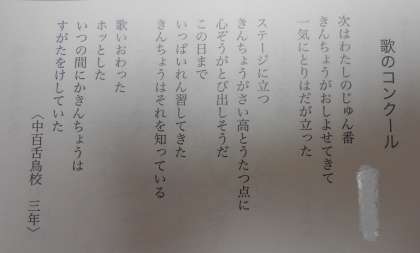 歌のコンクール
次はわたしのじゅん番
きんちょうがおしよせてきて
一気にとりはだが立った
ステージに立つ
きんちょうがさい高とうたつ点に
心ぞうがとび出しそうだ
この日まで
いっぱいれん習してきた
きんちょうはそれを知っている
歌いおわった
ホッとした
いつの間にかきんちょうは
すがたをけしていた
〈中百舌鳥校　三年〉